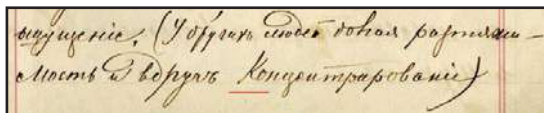 ощущеніе. (У другихъ людей долгая растяжи-
мость и вдругъ Концентрированіе)